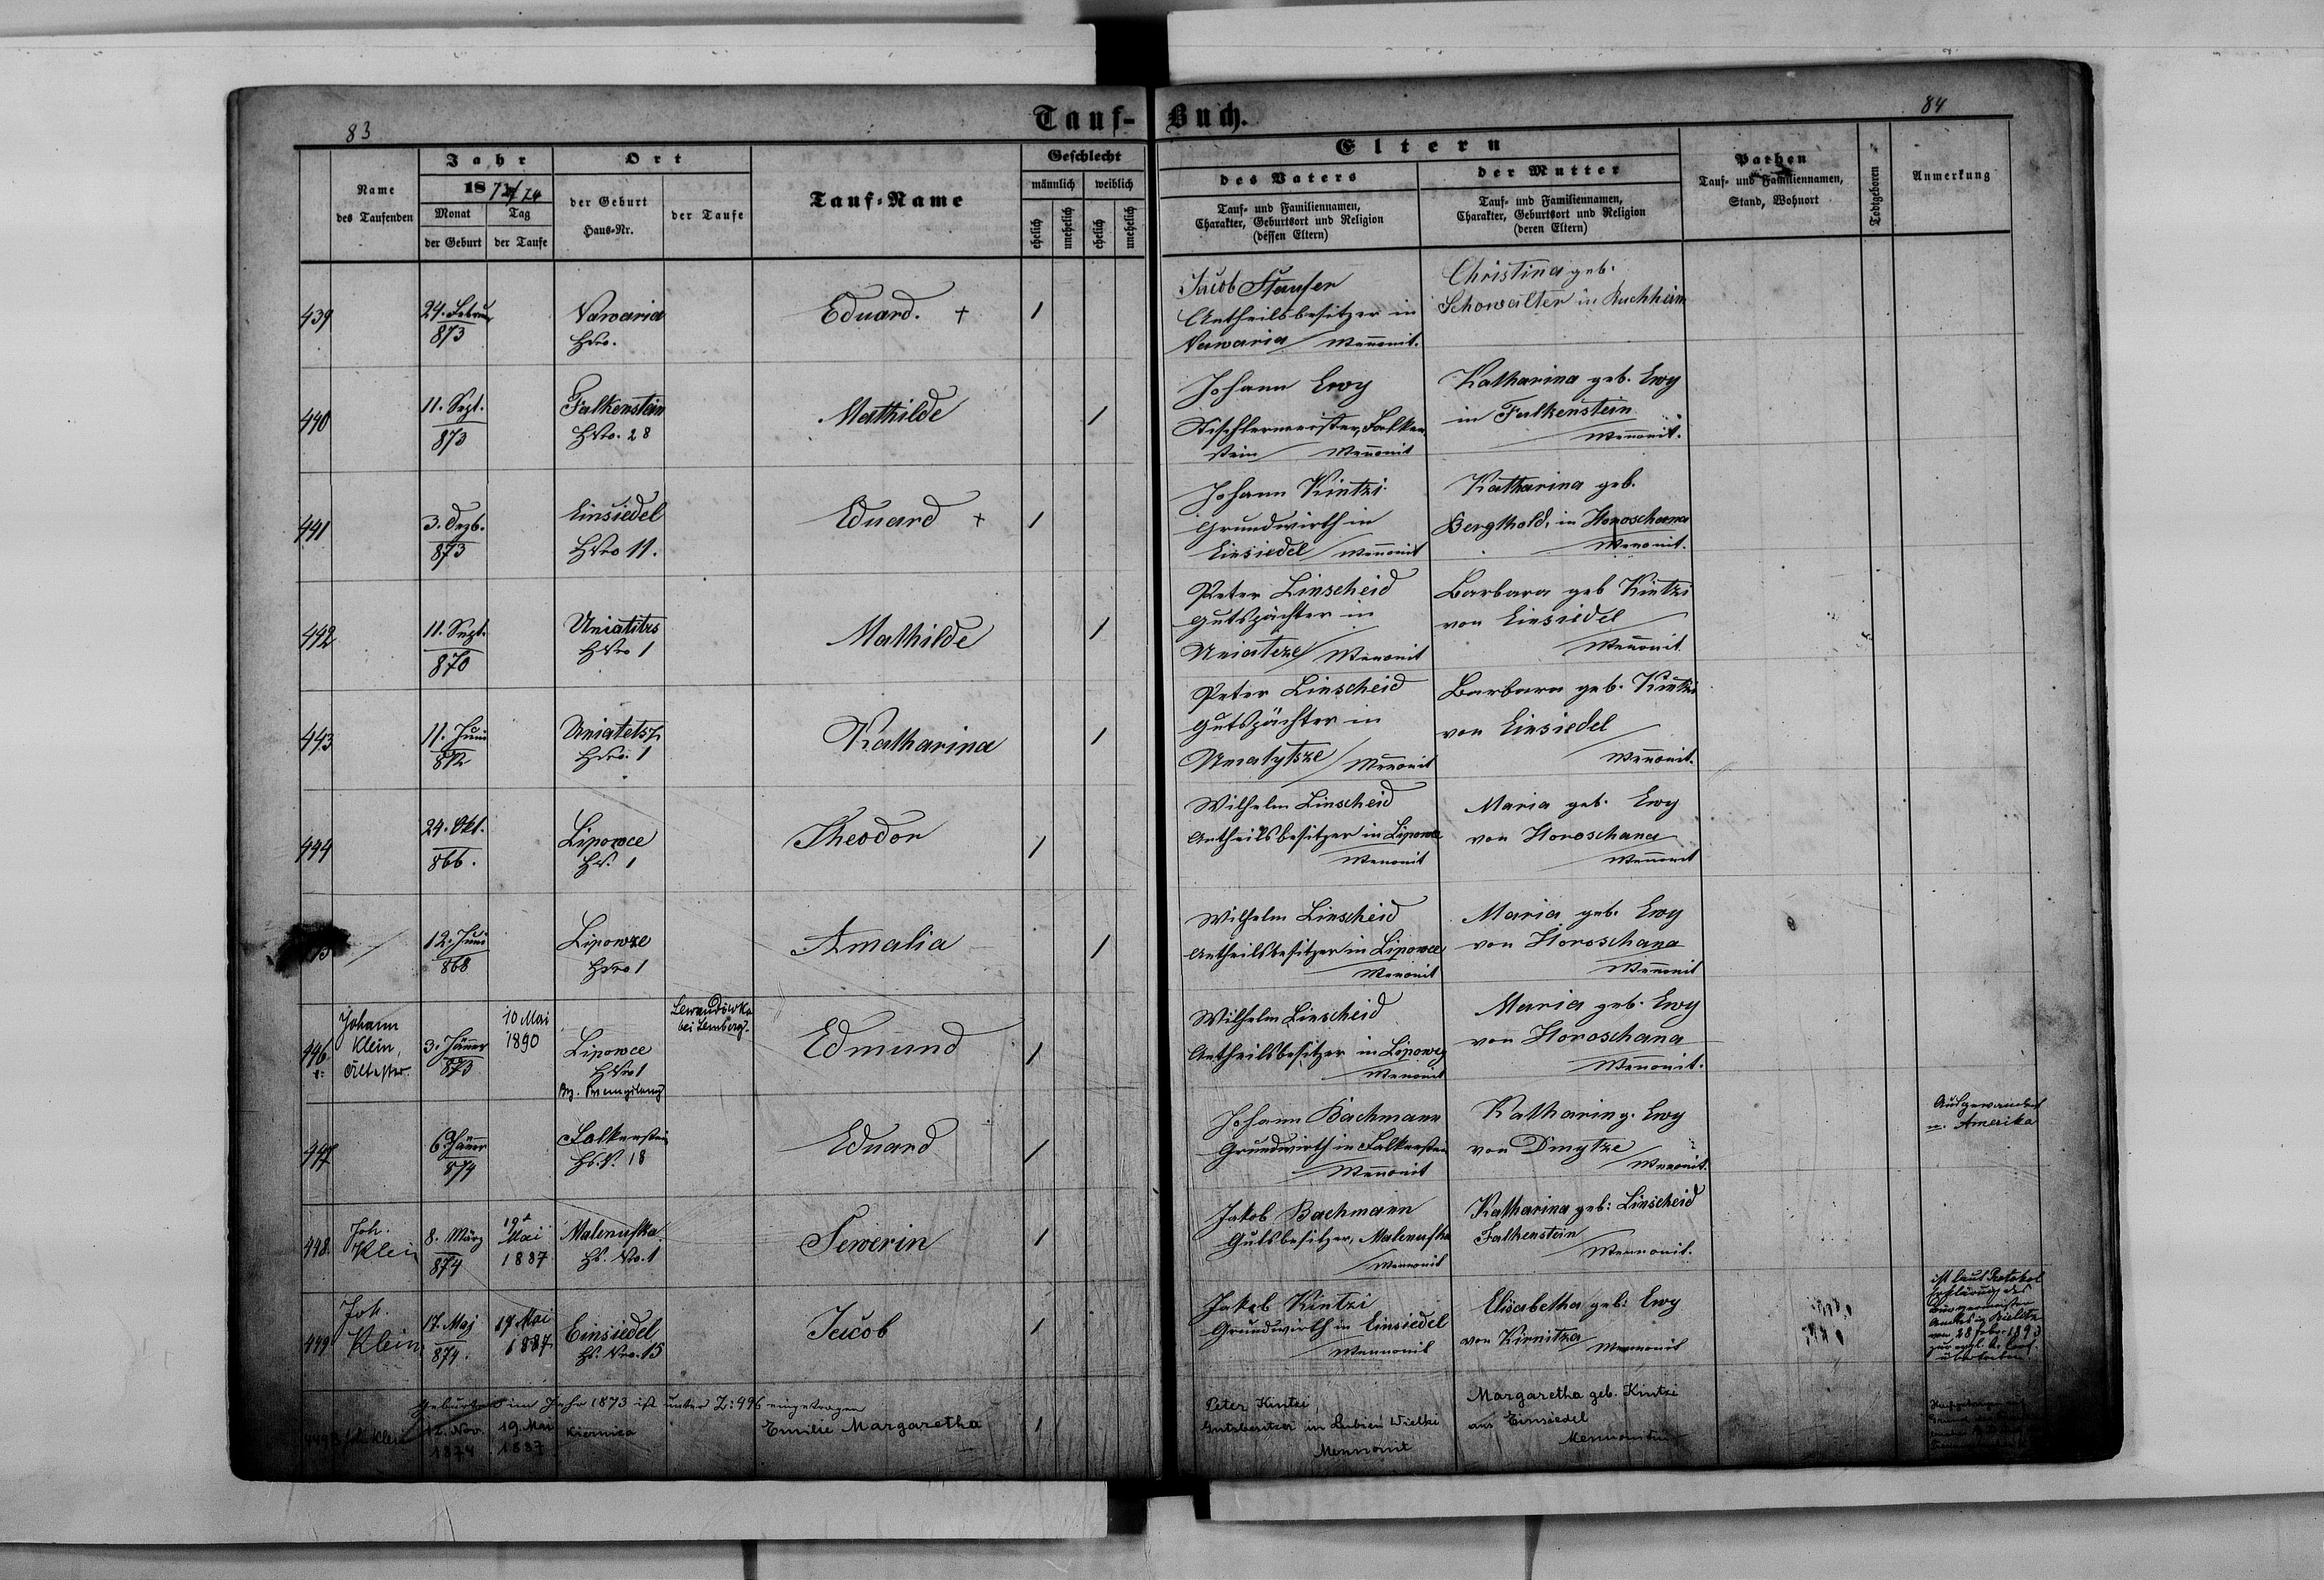 83
Tauf-
Buch.
84
Name
des Taufenden
Jahr
18 73/74
Monat
der Geburt
Tag
der Taufe
Ort
der Geburt
Haus-Nr.
der Taufe
Tauf-Name
Geschlecht
männlich
weiblich
ehelich
unehelich
ehelich
unehelich
Eltern
des Vaters
Tauf- und Familiennamen,
Charakter, Geburtsort und Religion
(dessen Eltern)
der Mutter
Tauf- und Familiennamen,
Charakter, Geburtsort und Religion
(deren Eltern)
Pathen
Tauf- und Familiennamen,
Stand, Wohnort
Todtgeboren
Anmerkung
439
24. Febru
873
Nawaria
HNro.
Eduard. +
1
Jacob Staufer
Antheilsbesitzer in
Nawaria Mennonit.
Christina geb.
Schowalter in
440
11. Sept.
873
Falkenstein
HNro. 28
Mathilde
1
Johann Ewy
Tischlermeister, Falken
stein Mennonit
Katharina geb. Ewy
in Falkenstein
Mennonit.
441
3. Dezb.
873
Einsiedel
HNro 11.
Eduard +
1
Johann Kintzi
Grundwirth in
Einsiedel Mennonit
Katharina geb.
Bergthold, in Horoschana
Mennonit.
442
11. Sept.
870
Uniatitzs
HNro 1
Mathilde
1
Peter Linscheid
Gutspächter in
Uniateze Mennonit
Barbara geb Kintzi
von Einsiedel
Mennonit
443
11. Juni
872
HNro. 1
Katharina
1
Peter Linscheid
Gutspächter in
Uniatytsze Mennonit
Barbara geb. Kintzi
von Einsiedel
Mennonit.
444
24. Okt.
866.
Lipowce
HN. 1
Theodor
1
Wilhelm Linscheid
Antheilsbesitzer in Lipowce
Mennonit
Maria geb. Ewy
von Horoschana
Mennonit
12. Juni
868
Lipowze
HNro 1
Amalia
1
Wilhelm Linscheid
Antheilsbesitzer in Lipowce
Mennonit
Maria geb. Ewy
von Horoschana
Mennonit
446
Johann
Klein,
Ältester.
3. Jänner
873
10 Mai
1890
Lipowce
HNro 1
Lewandówka
bei Lemberg.
Edmund
1
Wilhelm Linscheid
Antheilsbesitzer in Lipowcy
Mennonit
Maria geb. Ewy
von Horoschana
Mennonit.
447
6. Jänner
874
Falkenstein
Hs. N. 18
Eduard
1
Johann Bachmann
Grundwirth in Falkenstein
Mennonit
Katharin g. Ewy
von Dmytze
Mennonit.
Ausgewandert
n. Amerika
448.
Joh.
Klein
8. März
874
19t
Mai
1887
Malenuska.
Hs. Nro. 1
Sewerin
1
Jakob Bachmann
Gutsbesitzer, Malenuska
Mennonit
Katharina geb: Linscheid
Falkenstein
Mennonit.
449
Joh.
Klein
17. Maj
874.
19 Mai
1887
Einsiedel
Hs. Nro. 15
Jacob
1
Jakob Kintzi
Grundwirth in Einsiedel
Mennonit
Elisabetha geb: Ewy
von Kirnitza Mennonit
ist laut Protokol
Erklärung des
Bürgermeister
Amtes in Bielitz
von 28 Febr. 1893
übertreten.
Geburten im Jahr 1873 ist unter Z: 496 eingetragen
Klein
12. Nov.
1874
19. Mai
1887
Kiernica
Emilie Margaretha
1
Peter Kintzi,
Gutsbesitzer in Lubien Wielki
Mennonit
Margaretha geb. Kintzi
aus Einsiedel